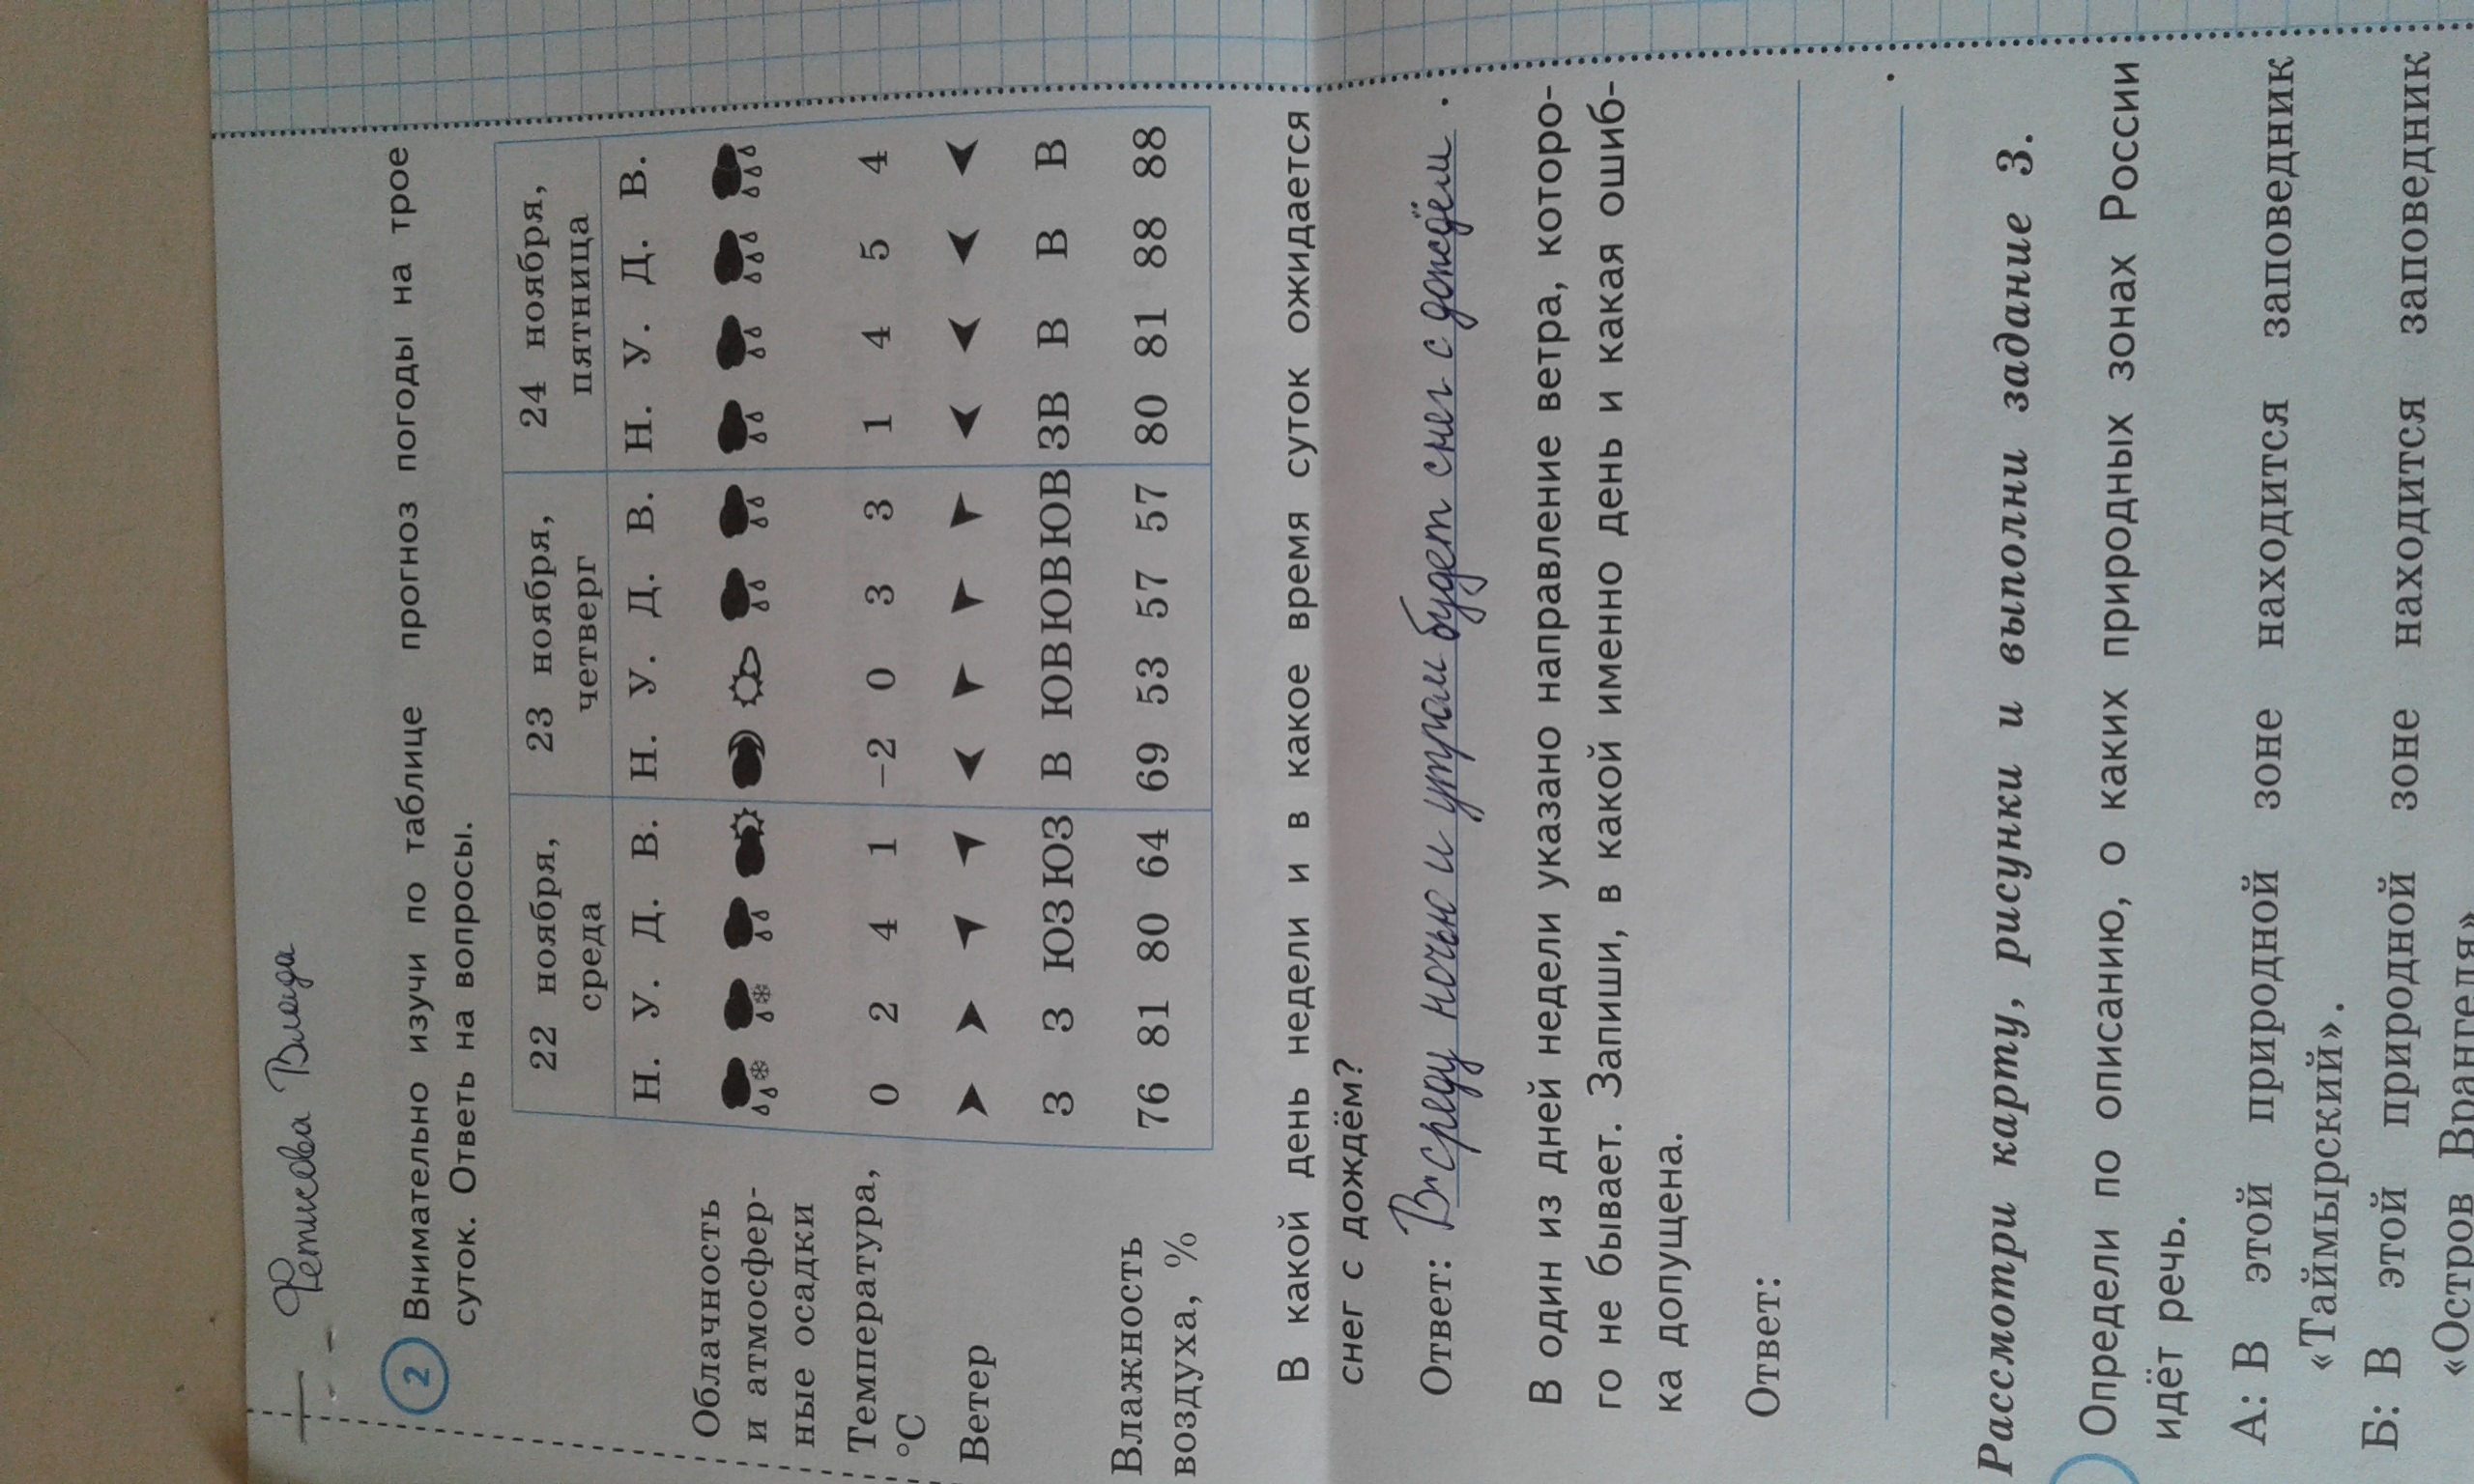 Фетисова Влада
2 Внимательно изучи по таблице прогноз погоды на трое
суток. Ответь на вопросы.
22 ноября, 23 ноября, 24 ноября,
среда четверг пятница
Н. У. Д. В. Н. У. Д. В. Н. У. Д. В.
Облачность
и атмосфер-
ные осадки
Температура, 0 2 4 1 –2 0 3 3 1 4 5 4
°С
Ветер
З З ЮЗ ЮЗ В ЮВ ЮВ ЮВ ЗВ В В В
Влажность 76 81 80 64 69 53 57 57 80 81 88 88
воздуха, %
В какой день недели и в какое время суток ожидается
снег с дождём?
Ответ: В среду ночью и утром будет снег с дождём.
В один из дней недели указано направление ветра, которо-
го не бывает. Запиши, в какой именно день и какая ошиб-
ка допущена.
Ответ:
.
Рассмотри карту, рисунки и выполни задание 3.
Определи по описанию, о каких природных зонах России
идёт речь.
А: В этой природной зоне находится заповедник
«Таймырский».
Б: В этой природной зоне находится заповедник
«Остров Врангеля»